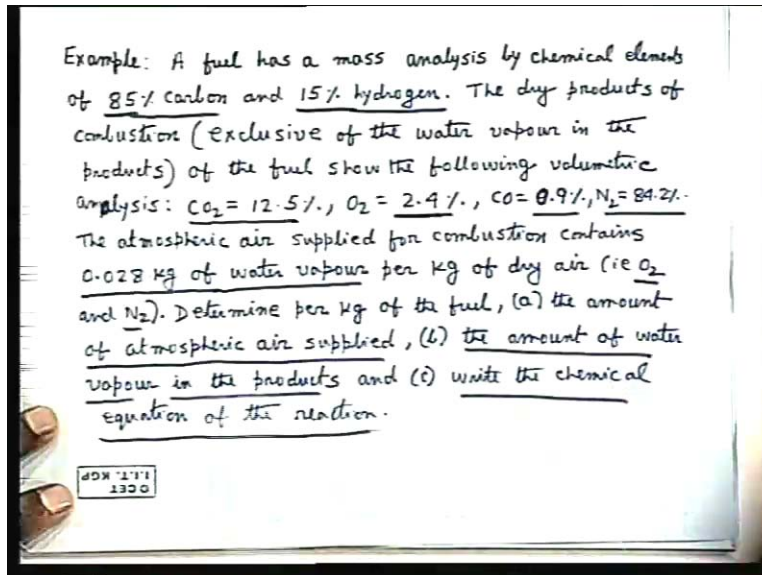 Example: A fuel has a mass analysis by chemical elements
of 85% Carbon and 15% hydrogen. The dry products of
combustion (exclusive of the water vapour in the
products) of the fuel show the following volumetric
analysis: CO₂ = 12.5%, O₂ = 2.4%, CO = 0.9%, N₂ = 84.2%.
The atmospheric air supplied for combustion contains
0.028 kg of water vapour per kg of dry air (ie O₂
and N₂). Determine per kg of the fuel, (a) the amount
of atmospheric air supplied, (b) the amount of water
vapour in the products and (c) write the chemical
equation of the reaction.
© CET
I.I.T. KGP